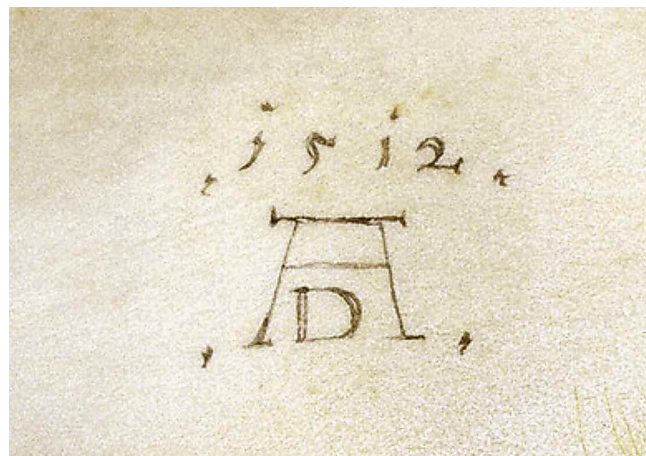 .1512.
.AD.